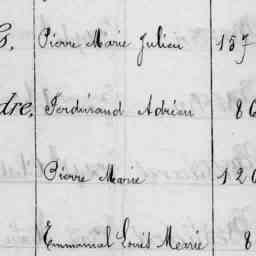 s. Pierre Marie Julien 157
dre. Ferdinand Adrien 86
Pierre Marie 120
Emmanuel Louis Marie 8